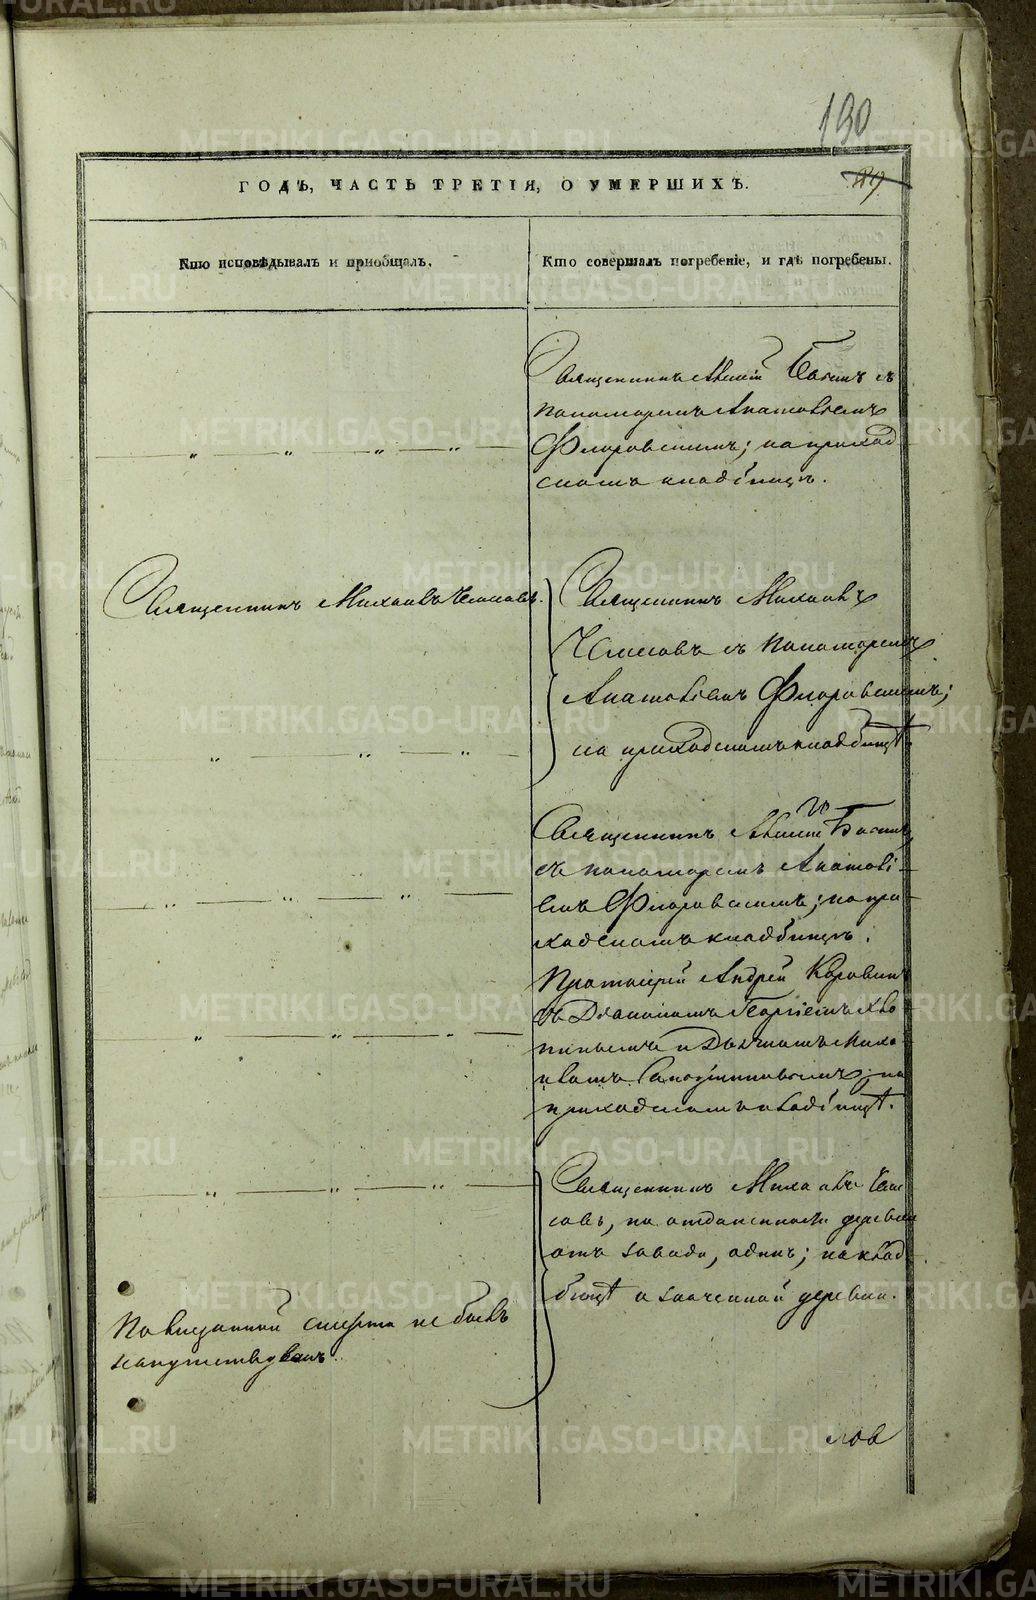 190
ГОДЪ, ЧАСТЬ ТРЕТІЯ, О УМЕРШИХЪ.
189
Кто исповѣдывалъ и пріобщалъ.
Кто совершалъ погребеніе, и гдѣ погребены.
Священникъ Алексій съ
пономаремъ
Флоровскимъ; на приход
скомъ кладбищѣ.
Священникъ Михаилъ
Священникъ Михаилъ
съ пономаремъ
Флоровскимъ;
на приходскомъ кладбищѣ.
Священникъ Алексій
съ пономаремъ
емъ Флоровскимъ; на при-
ходскомъ кладбищѣ.
Протоіерей Андрей Коровинъ
съ Діакономъ Георгіемъ Хло
пинымъ и Дьячкомъ Миха
иломъ на
приходскомъ кладбищѣ.
Священникъ Михаилъ
совъ, по отдаленности деревни
отъ завода, одинъ; на клад
бищѣ означенной деревни.
По внезапной смерти не былъ
напутствованъ.
METRIKI.GASO-URAL.RU